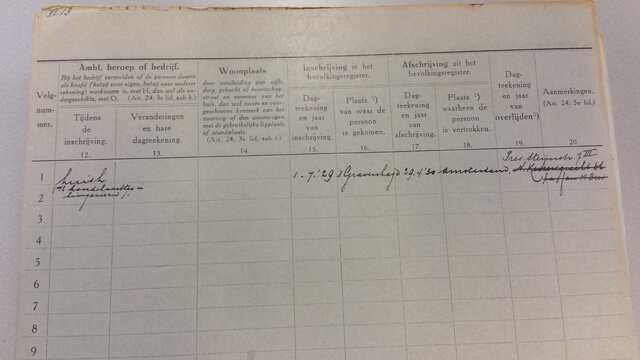 Volg-
num-
mer.
Ambt, beroep of bedrijf.
Bij het bedrijf vermelden of de persoon daarin
als hoofd (hetzij voor eigen, hetzij voor anderer
rekening) werkzaam is, met H, dan wel als on-
dergeschikte, met O. (Art. 24, 3e lid, sub h.)
Tijdens
de
inschrijving.
12.
Veranderingen
en hare
dagteekening.
13.
Woonplaats
door aanduiding van wijk,
gehucht of buurtschap,
straat en nummer van het
huis, dan wel naam en voor-
geschreven kenmerk van het
vaartuig of den woonwagen
met de gebruikelijke ligplaats
of standplaats.
(Art. 24, 3e lid, sub i.)
14.
Inschrijving in het
bevolkingsregister.
Dag-
teekening
en jaar
van
inschrijving.
15.
Plaats
van waar de
persoon
is gekomen.
16.
Afschrijving uit het
bevolkingsregister.
Dag-
teekening
en jaar
van
afschrijving.
17.
Plaats
waarheen de
persoon
is vertrokken.
18.
Dag-
teekening
en jaar
van
overlijden
19.
Aanmerkingen.
(Art. 24, 5e lid.)
20.
1
1-7-'29
's Gravenhage
29.4.'30
Amsterdam
2
3
4
5
6
7
8
9